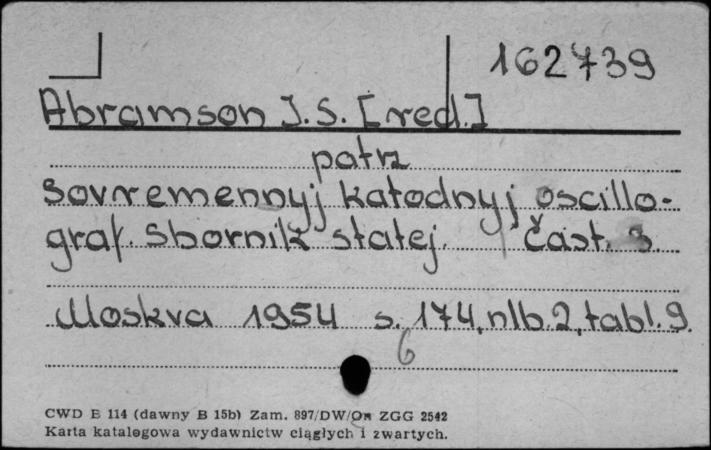 162739
Abramson J.S. [red.]
patrz
Sovremennyj katodnyj oscillo-
graf. Sbornik statej. Čast. 3.
Moskva 1954 s. 174, nlb. 2, tabl. 9.
6
CWD E 114 (dawny B 15b) Zam. 897/DW/On ZGG 2542
Karta katalogowa wydawnictw ciągłych i zwartych.